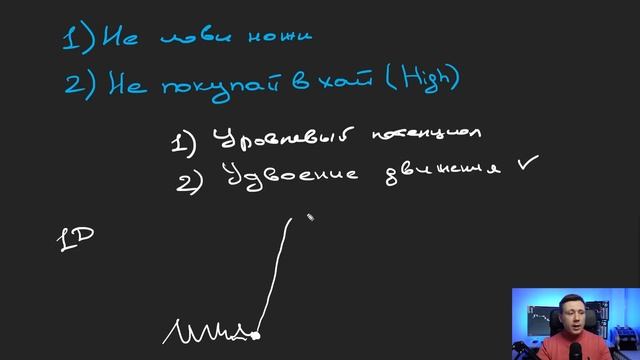 1) Не лови ножи
2) Не покупай в хай (High)
1) Уровневый потенциал
2) Удвоение движения ✓
1D